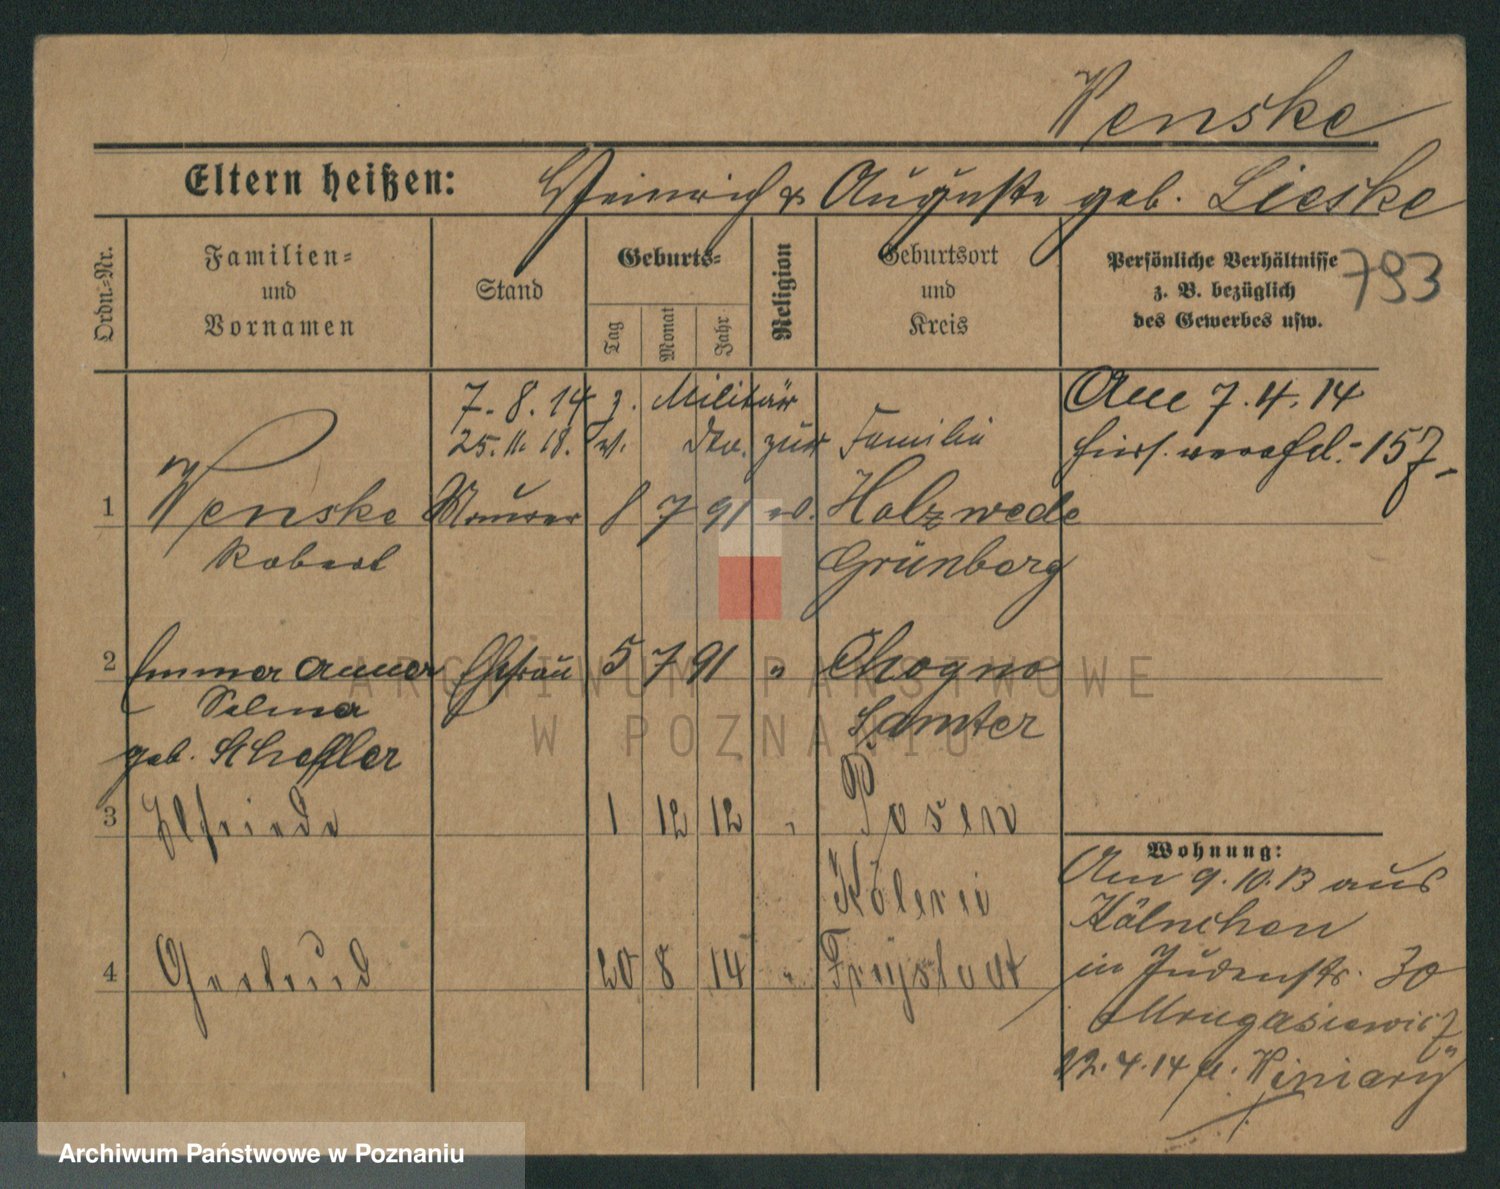 Wenske
Eltern heißen: Heinrich & Auguste geb. Lieske
Ordn.-Nr.
Familien-
und
Vornamen
Stand
Geburts-
Tag
Monat
Jahr
Religion
Geburtsort
und
Kreis
Persönliche Verhältnisse
z. B. bezüglich
des Gewerbes usw.
793
7. 8. 14 z. Militär
25. 11. 18. v. do. zur Familie
Am 7. 4. 14
157
1 Wenske Maurer 8 7 91 ev. Holzwede
Robert Grünberg
2 Emma Anna Ehefrau 5 7 91 " Chogno
Selma Samter
geb. Scheffler
3 Elfriede 1 12 12 " Posen
4 Gertrud 20 8 14 " Freystadt
Wohnung:
Am 9. 10. 13 aus
in Judenstr. 30
22. 4. 14 Winiary
ARCHIWUM PAŃSTWOWE
W POZNANIU
Archiwum Państwowe w Poznaniu